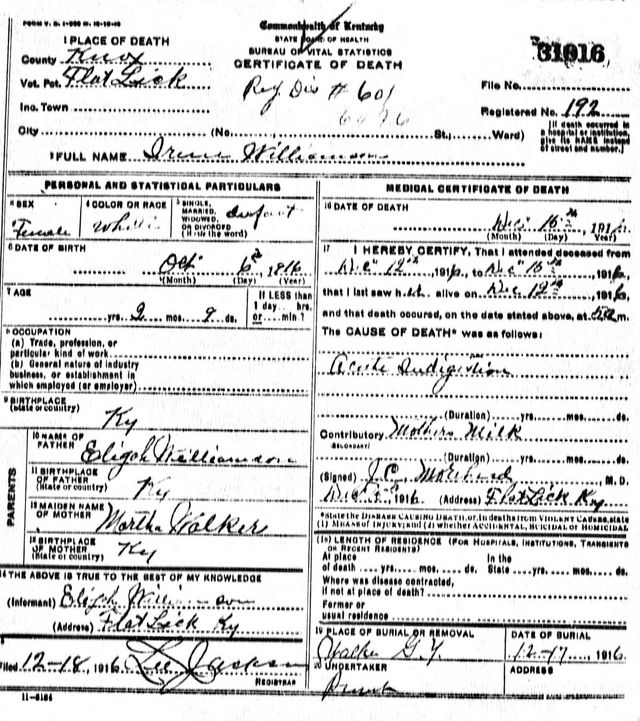 FORM V. S. 1-
Commonwealth of Kentucky
STATE BOARD OF HEALTH
BUREAU OF VITAL STATISTICS
CERTIFICATE OF DEATH
31916
1 PLACE OF DEATH
County Knox
Vot. Pct. Flat Lick
Inc. Town
City (No. St., Ward)
Reg Dis # 601
File No.
Registered No. 192
[If death occurred in a hospital or institution, give its NAME instead of street and number.]
2 FULL NAME Irene Williamson
PERSONAL AND STATISTICAL PARTICULARS
3 SEX
Female
4 COLOR OR RACE
White
5 SINGLE, MARRIED, WIDOWED, OR DIVORCED (Write the word)
infant
6 DATE OF BIRTH
Oct 6th, 1816
(Month) (Day) (Year)
7 AGE
yrs. 2 mos. 9 ds.
If LESS than 1 day hrs. or min.?
8 OCCUPATION
(a) Trade, profession, or
particular kind of work
(b) General nature of industry
business, or establishment in
which employed (or employer)
9 BIRTHPLACE
(State or country) Ky
PARENTS
10 NAME OF FATHER Eligah Williamson
11 BIRTHPLACE OF FATHER
(State or country) Ky
12 MAIDEN NAME OF MOTHER Martha Walker
13 BIRTHPLACE OF MOTHER
(State or country) Ky
14 THE ABOVE IS TRUE TO THE BEST OF MY KNOWLEDGE
(Informant) Eligh Williamson
(Address) Flat Lick Ky
Filed 12-18, 1916 Lee Jackson
REGISTRAR
11-5184
MEDICAL CERTIFICATE OF DEATH
16 DATE OF DEATH
Dec 15th, 1916
(Month) (Day) Year
17 I HEREBY CERTIFY, That I attended deceased from
Dec 12th, 1916, to Dec 15th, 1916,
that I last saw h alive on Dec 12th, 1916,
and that death occured, on the date stated above, at m.
The CAUSE OF DEATH* was as follows:
Acute Indigestion
(Duration) yrs. mos. ds.
Contributory Mothers Milk
SECONDARY
(Duration) yrs. mos. ds.
(Signed) J.C. Morehead, M. D.
1916 (Address) Flat Lick Ky
*State the DISEASE CAUSING DEATH, or, in deaths from VIOLENT CAUSES, state
(1) MEANS OF INJURY; and (2) whether ACCIDENTAL, SUICIDAL or HOMICIDAL
LENGTH OF RESIDENCE (FOR HOSPITALS, INSTITUTIONS, TRANSIENTS
OR RECENT RESIDENTS)
At place of death yrs. mos. ds. In the State yrs. mos. ds.
Where was disease contracted,
if not at place of death?
Former or
usual residence
19 PLACE OF BURIAL OR REMOVAL
Walker G.Y.
DATE OF BURIAL
12-17, 1916
20 UNDERTAKER
ADDRESS